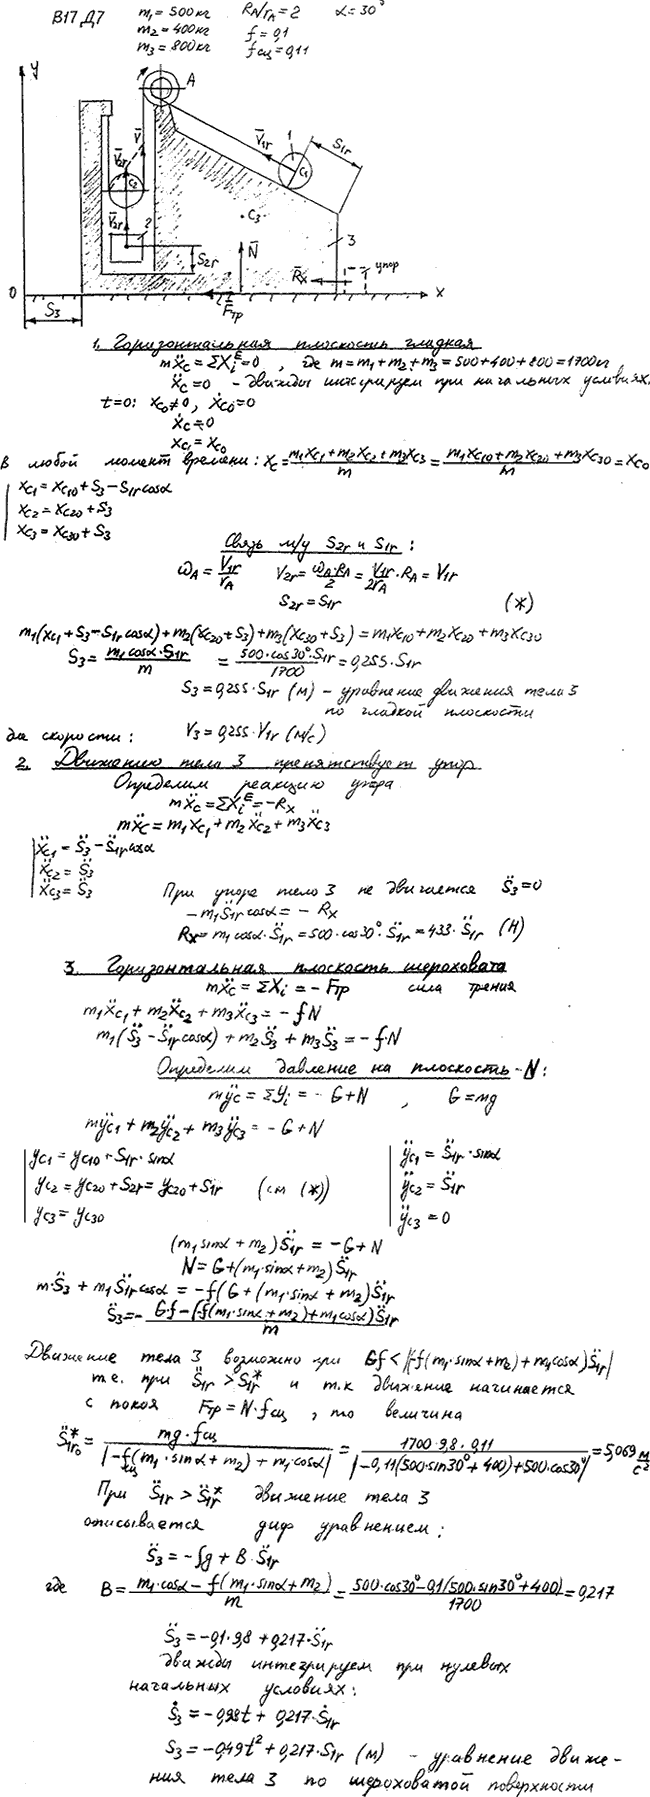 В17 Д7 m₁ = 500кг R_A/r_A = 2 α = 30°
m₂ = 400кг f = 0,1
m₃ = 800кг f_сц = 0,11
y
A
V̄
V̄₁r
1
S₁r
C₁
V̄₂r
C₂
V̄₂r
2
C₃
3
S₂r
N̄
R̄x
упор
0
S₃
F̄тр
x
1. Горизонтальная плоскость гладкая
mẍ_C = ΣX_i^E = 0 , где m = m₁ + m₂ + m₃ = 500 + 400 + 800 = 1700кг
ẍ_C = 0 - дважды интегрируем при начальных условиях.
t = 0: x_C0 ≠ 0 , ẋ_C0 = 0
ẋ_C = 0
x_C1 = x_C0
В любой момент времени: x_C = (m₁x_C1 + m₂x_C2 + m₃x_C3)/m = (m₁x_C10 + m₂x_C20 + m₃x_C30)/m = x_C0
x_C1 = x_C10 + S₃ - S₁r cosα
x_C2 = x_C20 + S₃
x_C3 = x_C30 + S₃
Связь м/у S₂r и S₁r :
ω_A = V₁r/r_A V₂r = ω_A·R_A/2 = V₁r/2r_A · R_A = V₁r
S₂r = S₁r (*)
m₁(x_C1 + S₃ - S₁r cosα) + m₂(x_C20 + S₃) + m₃(x_C30 + S₃) = m₁x_C10 + m₂x_C20 + m₃x_C30
S₃ = m₁cosα·S₁r/m = 500·cos30°·S₁r/1700 = 0,255·S₁r
S₃ = 0,255·S₁r (м) - уравнение движения тела 3
по гладкой плоскости
да скорости: V₃ = 0,255·V₁r (м/с)
2. Движению тела 3 препятствует упор
Определим реакцию упора
mẍ_C = ΣX_i^E = -Rx
mẍ_C = m₁ẍ_C1 + m₂ẍ_C2 + m₃ẍ_C3
ẍ_C1 = S̈₃ - S̈₁r cosα
ẍ_C2 = S̈₃
ẍ_C3 = S̈₃ При упоре тело 3 не двигается S̈₃ = 0
-m₁S̈₁r cosα = -Rx
Rx = m₁cosα·S̈₁r = 500·cos30°·S̈₁r = 433·S̈₁r (Н)
3. Горизонтальная плоскость шероховата
mẍ_C = ΣX_i = -Fтр сила трения
m₁ẍ_C1 + m₂ẍ_C2 + m₃ẍ_C3 = -fN
m₁(S̈₃ - S̈₁r cosα) + m₂S̈₃ + m₃S̈₃ = -f·N
Определим давление на плоскость - N:
mÿ_C = ΣY_i = -G + N , G = mg
mÿ_C1 + m₂ÿ_C2 + m₃ÿ_C3 = -G + N
y_C1 = y_C10 + S₁r·sinα ÿ_C1 = S̈₁r·sinα
y_C2 = y_C20 + S₂r = y_C20 + S₁r (см (*)) ÿ_C2 = S̈₁r
y_C3 = y_C30 ÿ_C3 = 0
(m₁sinα + m₂)S̈₁r = -G + N
N = G + (m₁·sinα + m₂)S̈₁r
m·S̈₃ + m₁S̈₁r cosα = -f(G + (m₁·sinα + m₂)S̈₁r
S̈₃ = - (Gf - (-f(m₁·sinα + m₂) + m₁cosα)S̈₁r)/m
Движение тела 3 возможно при Gf < |(-f(m₁·sinα + m₂) + m₁cosα)S̈₁r|
т.е. при S̈₁r > S̈₁r* и т.к движение начинается
с покоя Fтр = N·f_сц , то величина
S̈₁r₀* = mg·f_сц/|-f_сц(m₁·sinα + m₂) + m₁·cosα| = 1700·9,8·0,11/|-0,11(500·sin30° + 400) + 500·cos30°| = 5,069 м/с²
При S̈₁r > S̈₁r* движение тела 3
описывается диф уравнением:
S̈₃ = -fg + B·S̈₁r
где B = (m₁·cosα - f(m₁·sinα + m₂))/m = (500·cos30° - 0,1(500·sin30° + 400))/1700 = 0,217
S̈₃ = -0,1·9,8 + 0,217·S̈₁r
дважды интегрируем при нулевых
начальных условиях:
Ṡ₃ = -0,98t + 0,217·Ṡ₁r
S₃ = -0,49t² + 0,217·S₁r (м) - уравнение движе-
ния тела 3 по шероховатой поверхности